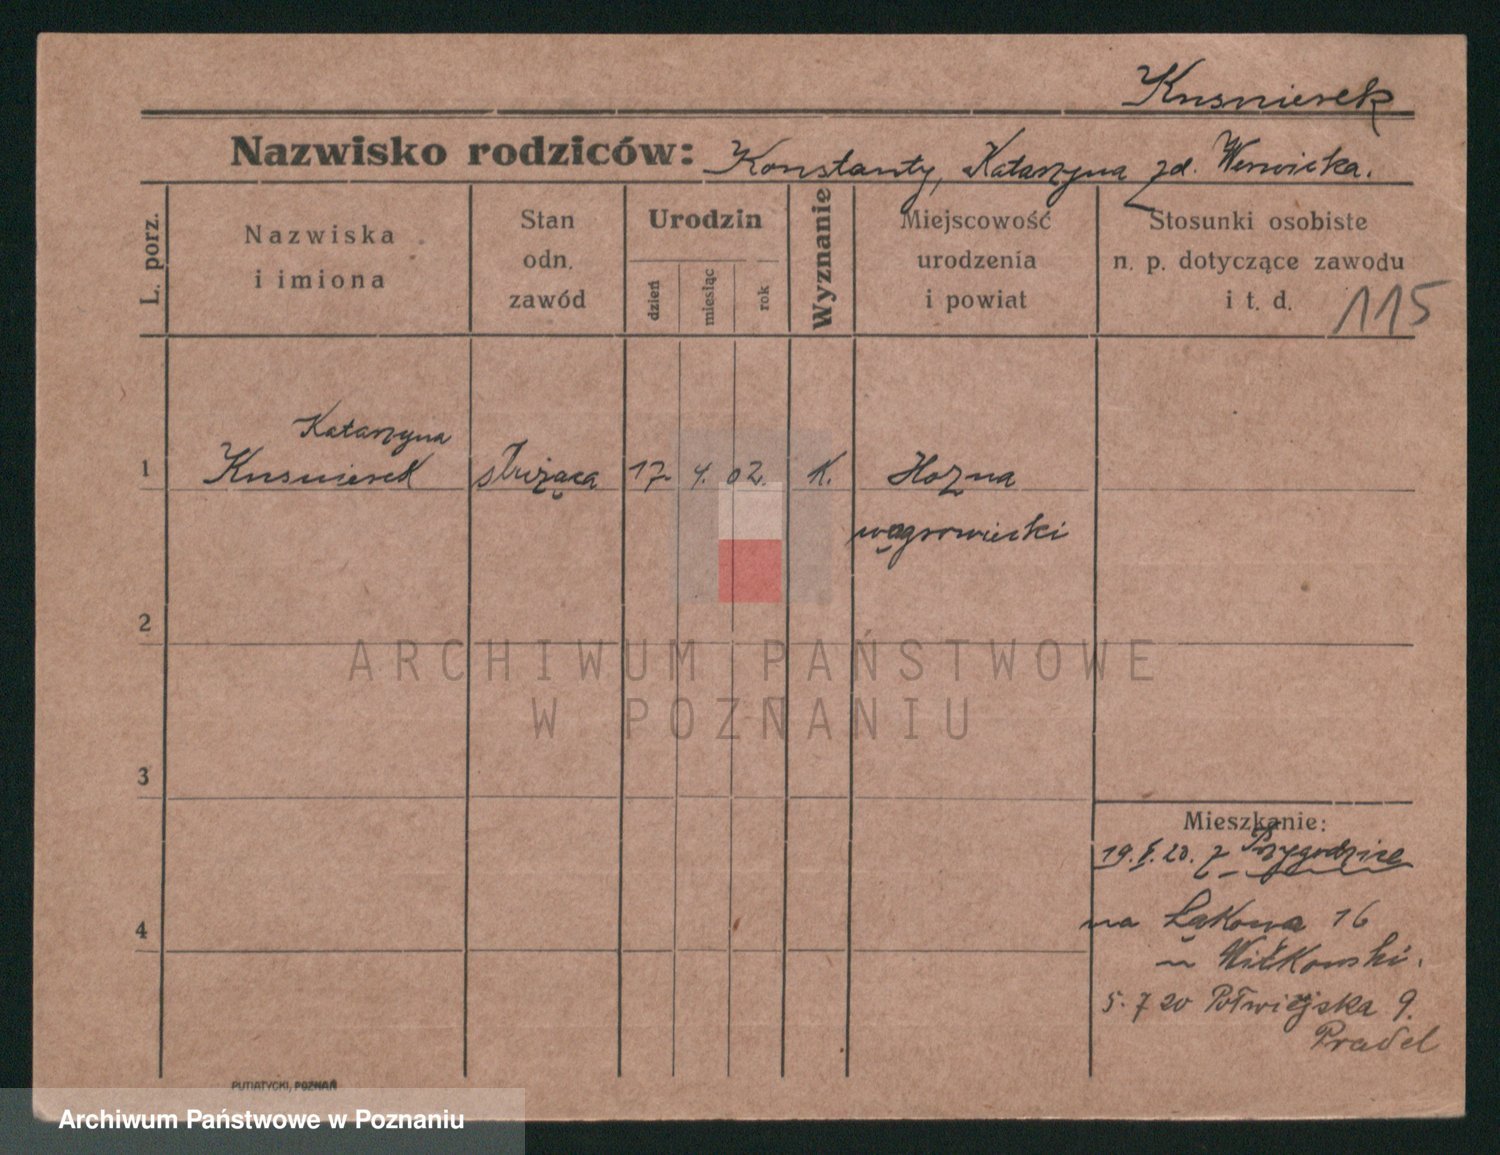 Kusnierek
Nazwisko rodziców: Konstanty, Katarzyna zd.
L. porz.
Nazwiska
i imiona
Stan
odn.
zawód
Urodzin
dzień
miesiąc
rok
Wyznanie
Miejscowość
urodzenia
i powiat
Stosunki osobiste
n. p. dotyczące zawodu
i t. d.
115
Katarzyna
1 Kusnierek służąca 17. 4. 02. K.
wągrowiecki
2
3
4
ARCHIWUM PAŃSTWOWE
W POZNANIU
Mieszkanie:
19. 5. 20. z Przygodzice
na Łąkowa 16
Witkowski.
5. 7 20 Półwiejska 9.
Pradel
PUTIATYCKI, POZNAŃ
Archiwum Państwowe w Poznaniu